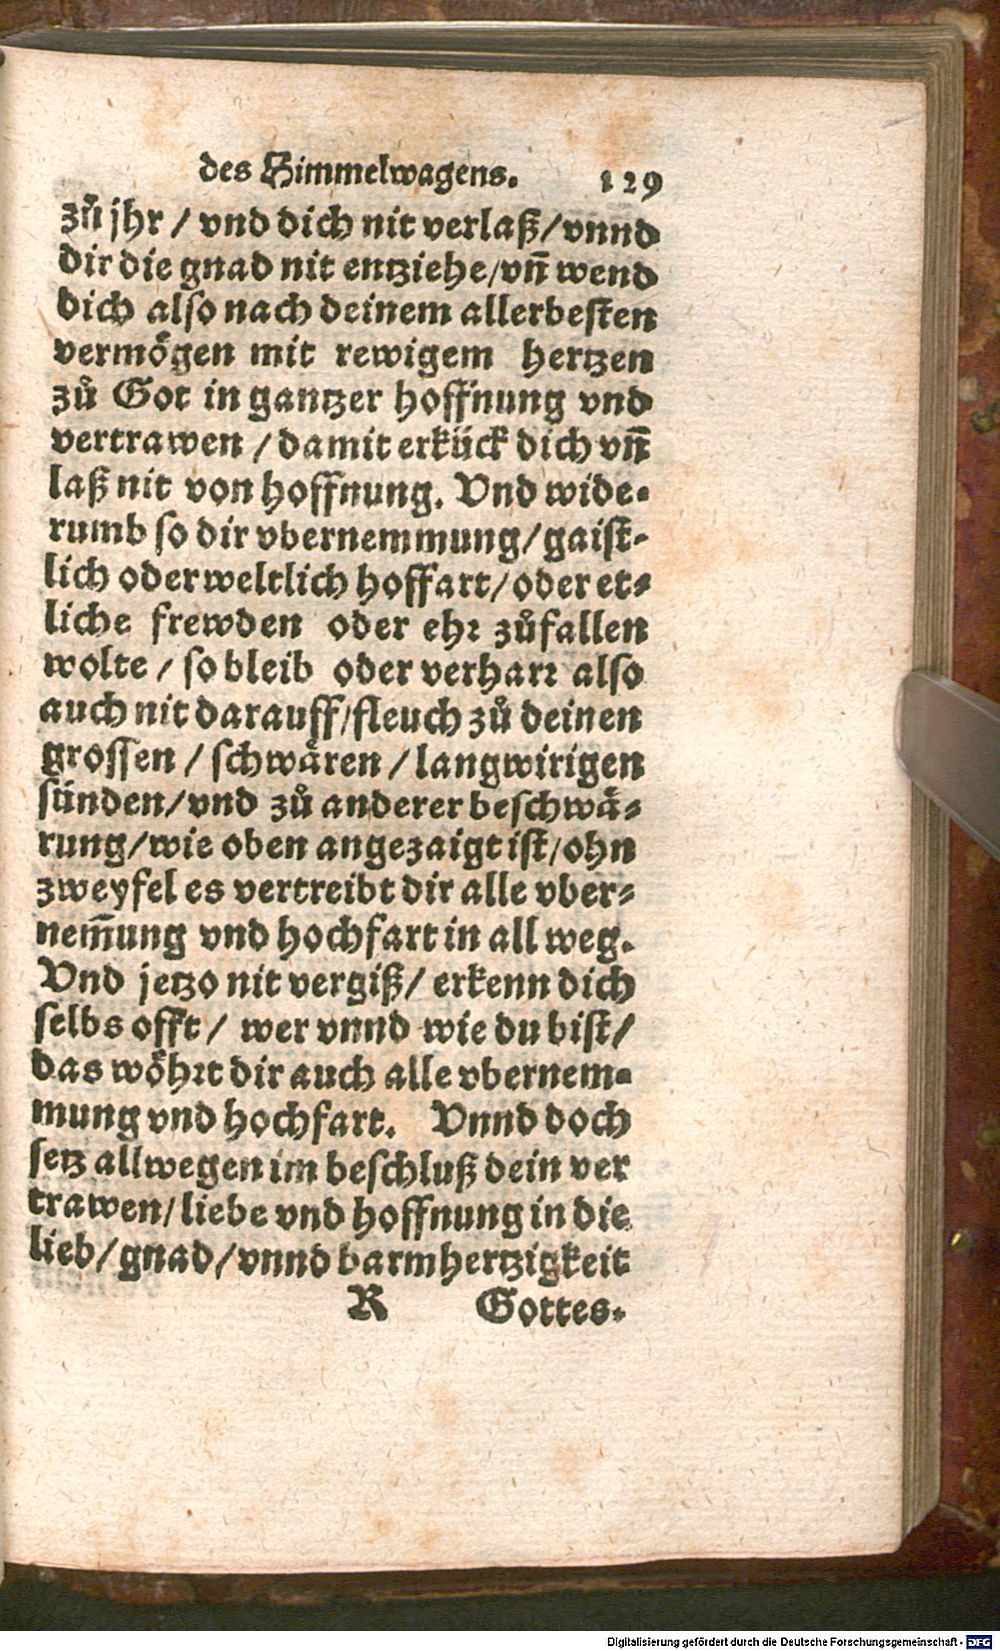 des Himmelwagens. 129
zů jhr / vnd dich nit verlaß / vnnd
dir die gnad nit entziehe / vñ wend
dich also nach deinem allerbesten
vermoͤgen mit rewigem hertzen
zů Got in gantzer hoffnung vnd
vertrawen / damit erkück dich vñ
laß nit von hoffnung. Vnd wide-
rumb so dir vbernemmung / gaist-
lich oder weltlich hoffart / oder et-
liche frewden oder ehr zůfallen
wolte / so bleib oder verharr also
auch nit darauff / fleuch zů deinen
grossen / schwaͤren / langwirigen
sünden / vnd zů anderer beschwaͤ-
rung / wie oben angezaigt ist / ohn
zweyfel es vertreibt dir alle vber-
nem̃ung vnd hochfart in all weg.
Vnd jetzo nit vergiß / erkenn dich
selbs offt / wer vnnd wie du bist /
das woͤhrt dir auch alle vbernem-
mung vnd hochfart. Vnnd doch
setz allwegen im beschluß dein ver
trawen / liebe vnd hoffnung in die
lieb / gnad / vnnd barmhertzigkeit
R Gottes.
Digitalisierung gefördert durch die Deutsche Forschungsgemeinschaft - DFG